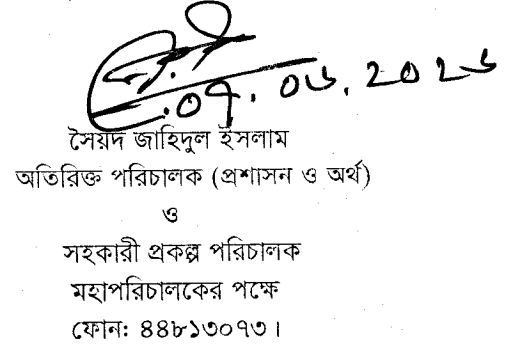 সৈয়দ জাহিদুল ইসলাম
অতিরিক্ত পরিচালক (প্রশাসন ও অর্থ)
ও
সহকারী প্রকল্প পরিচালক
মহাপরিচালকের পক্ষে
ফোন: ৪৪৮১৩০৭৩।